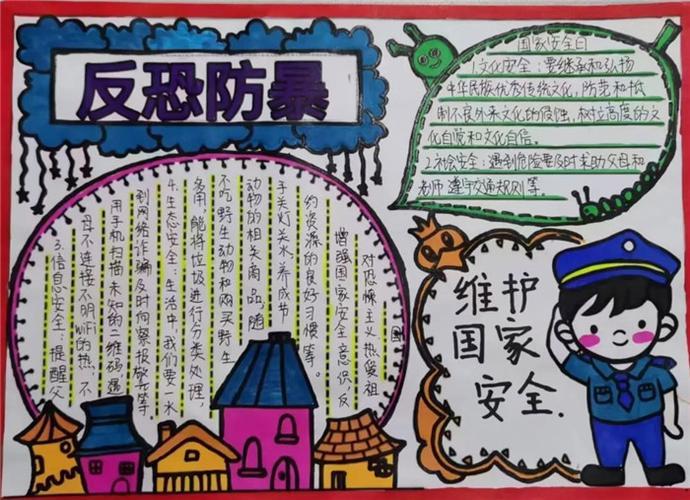 反恐防暴
国家安全日
1.文化安全：要继承和弘扬
中华民族优秀传统文化，防范和抵
制不良外来文化的侵蚀，树立高度的文
化自觉和文化自信。
2.社会安全：遇到危险要及时求助父母和
老师遵守交通规则等。
3.信息安全：提醒父
母不连接不明WiFi的热，不
用手机扫描未知的二维码，遇
到网络诈骗及时向警报警等
4.生态安全：生活中，我们要一水
多用，能将垃圾进行分类处理，
不吃野生动物和购买野生
动物的相关商品，随
手关灯关水养成节
约资源的良好习惯等。
增强国家安全意识，反
对恐怖主义热爱祖
国
维护
国家
安全.